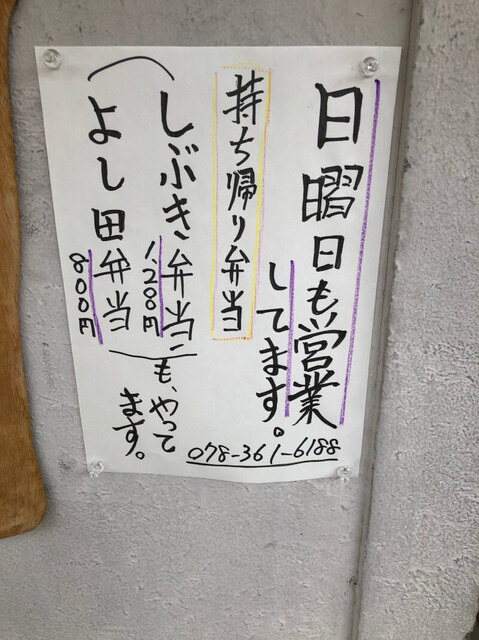 日曜日も営業
してます。
持ち帰り弁当
しぶき弁当
1,200円
よし田弁当
800円
も、やって
ます。
078-361-6188